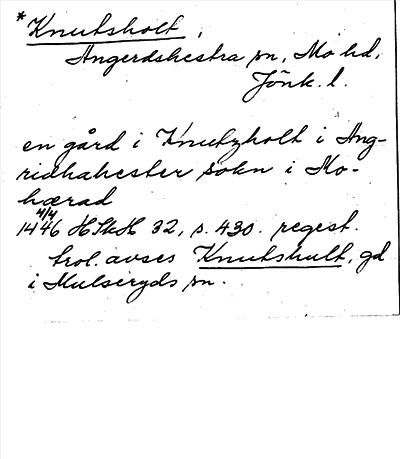 *Knutsholt,
Angerdshestra sn, Mo hd,
Jönk. l.
en gård i Knutzholt i Ang-
ridhahester sokn i Mo-
hærad
4/4
1446 HSkH 32, s. 430. regest.
trol. avses Knutshult, gd
i Mulseryds sn.